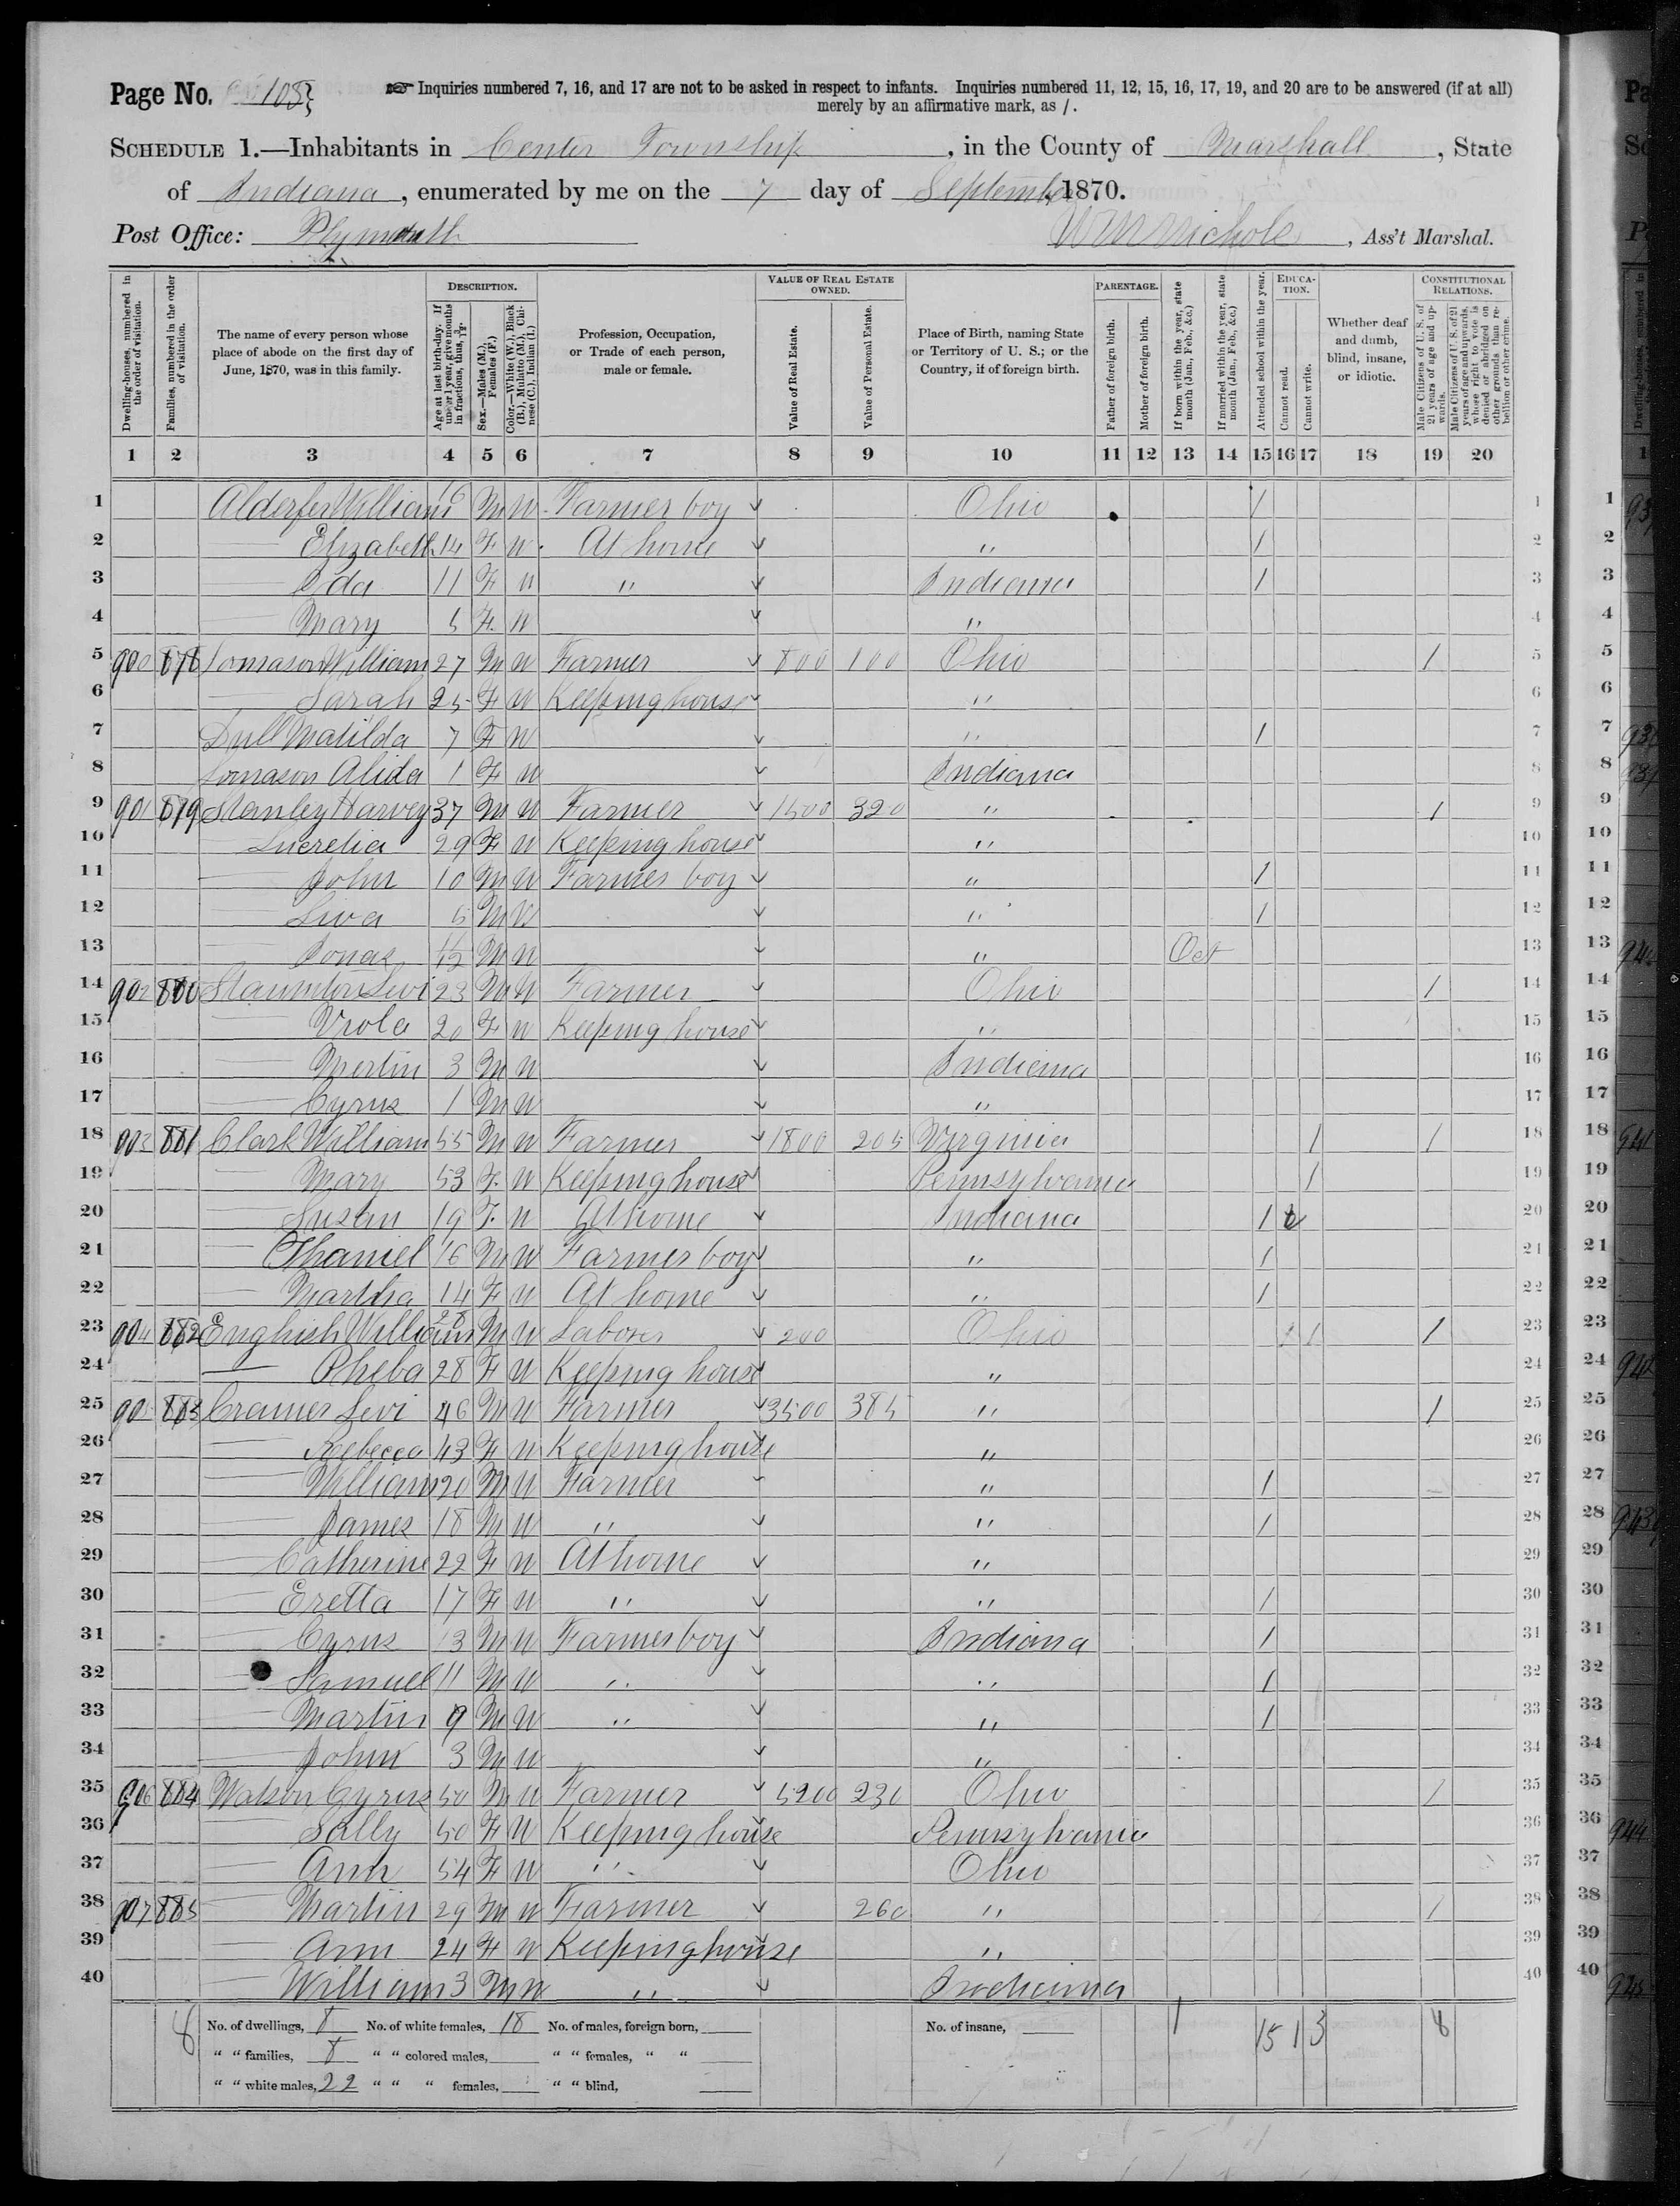 Page No. 105
Inquiries numbered 7, 16, and 17 are not to be asked in respect to infants. Inquiries numbered 11, 12, 15, 16, 17, 19, and 20 are to be answered (if at all)
merely by an affirmative mark, as /.
SCHEDULE 1.—Inhabitants in Center Township, in the County of Marshall, State
of Indiana, enumerated by me on the 7 day of September, 1870.
Post Office: Plymouth
, Ass't Marshal.
Dwelling-houses, numbered in the order of visitation.
Families, numbered in the order of visitation.
The name of every person whose place of abode on the first day of June, 1870, was in this family.
DESCRIPTION.
Age at last birth-day. If under 1 year, give months in fractions, thus, 3/12.
Sex.—Males (M.), Females (F.)
Color.—White (W.), Black (B.), Mulatto (M.), Chinese (C.), Indian (I.)
Profession, Occupation, or Trade of each person, male or female.
VALUE OF REAL ESTATE OWNED.
Value of Real Estate.
Value of Personal Estate.
Place of Birth, naming State or Territory of U. S.; or the Country, if of foreign birth.
PARENTAGE.
Father of foreign birth.
Mother of foreign birth.
If born within the year, state month (Jan., Feb., &c.)
If married within the year, state month (Jan., Feb., &c.)
Attended school within the year.
EDUCATION.
Cannot read.
Cannot write.
Whether deaf and dumb, blind, insane, or idiotic.
CONSTITUTIONAL RELATIONS.
Male Citizens of U. S. of 21 years of age and upwards.
Male Citizens of U. S. of 21 years of age and upwards, whose right to vote is denied or abridged on other grounds than rebellion or other crime.
1 2 3 4 5 6 7 8 9 10 11 12 13 14 15 16 17 18 19 20
1 Alderfer William 16 M W Farmer boy Ohio / 1
2 — Elizabeth 14 F W At home " / 2
3 — Ida 11 F W " Indiana / 3
4 — Mary 5 F W " 4
5 900 878 William 27 M W Farmer 800 100 Ohio / 5
6 — Sarah 25 F W Keeping house " 6
7 Dull Matilda 7 F W " / 7
8 Alida 1 F W Indiana 8
9 901 879 Stanley Harvey 37 M W Farmer 1500 320 " / 9
10 — Lucretia 29 F W Keeping house " 10
11 — John 10 M W Farmer boy " / 11
12 — M W " / 12
13 — Jonas M W " Oct 13
14 902 880 Levi 23 M W Farmer Ohio / 14
15 — Viola 20 F W Keeping house " 15
16 — Mertin 3 M W Indiana 16
17 — Cyrus 1 M W " 17
18 903 881 Clark William 55 M W Farmer 1800 205 Virginia / / 18
19 — Mary 53 F W Keeping house Pennsylvania / 19
20 — Susan 19 F W At home Indiana / 20
21 — 16 M W Farmer boy " / 21
22 — Martha 14 F W At home " / 22
23 904 882 English William 28 M W Laborer 200 Ohio / / / 23
24 — Pheba 28 F W Keeping house " 24
25 905 883 Cramer Levi 46 M W Farmer 3500 385 " / 25
26 — Rebecca 43 F W Keeping house " 26
27 — William 20 M W Farmer " / 27
28 — James 18 M W " " / 28
29 — Catherine 22 F W At home " 29
30 — Eretta 17 F W " " / 30
31 — Cyrus 13 M W Farmer boy Indiana / 31
32 — Samuel 11 M W " " / 32
33 — Martin 9 M W " " / 33
34 — John 3 M W " 34
35 906 884 Watson Cyrus 50 M W Farmer 5200 230 Ohio / 35
36 — Sally 50 F W Keeping house Pennsylvania 36
37 — Ann 54 F W " Ohio 37
38 907 885 — Martin 29 M W Farmer 260 " / 38
39 — Ann 24 F W Keeping house " 39
40 — William 3 M W " Indiana 40
8 No. of dwellings, 8 No. of white females, 18 No. of males, foreign born, No. of insane, 1 15 1 3 8
" " families, 8 " " colored males, " " females, " "
" " white males, 22 " " " females, " " blind,